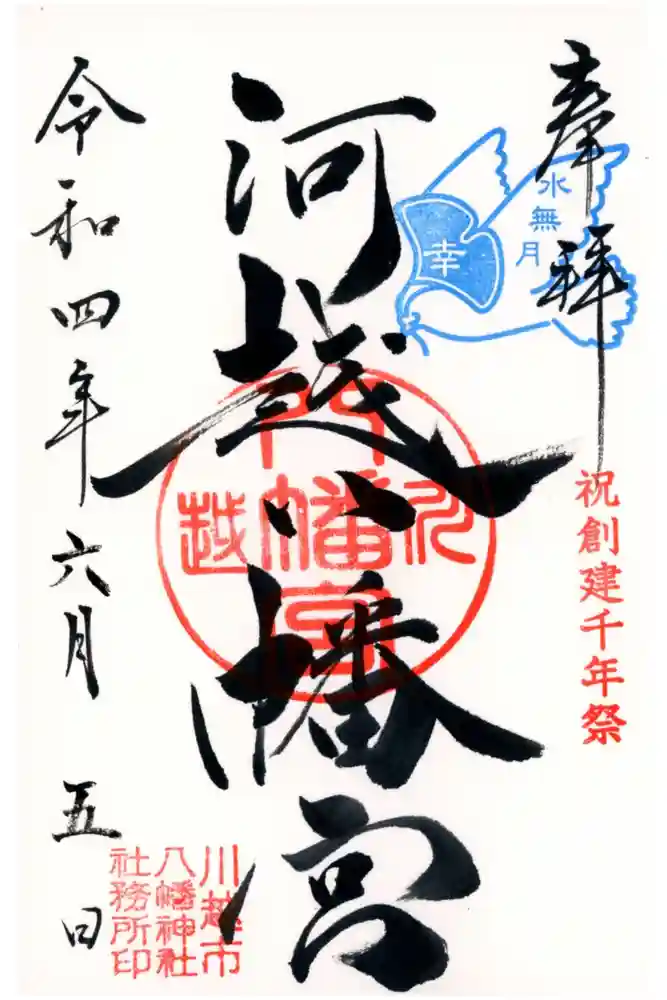 奉拝
水無月
幸
祝創建千年祭
河越八幡宮
川越市
八幡神社
社務所印
令和四年六月五日